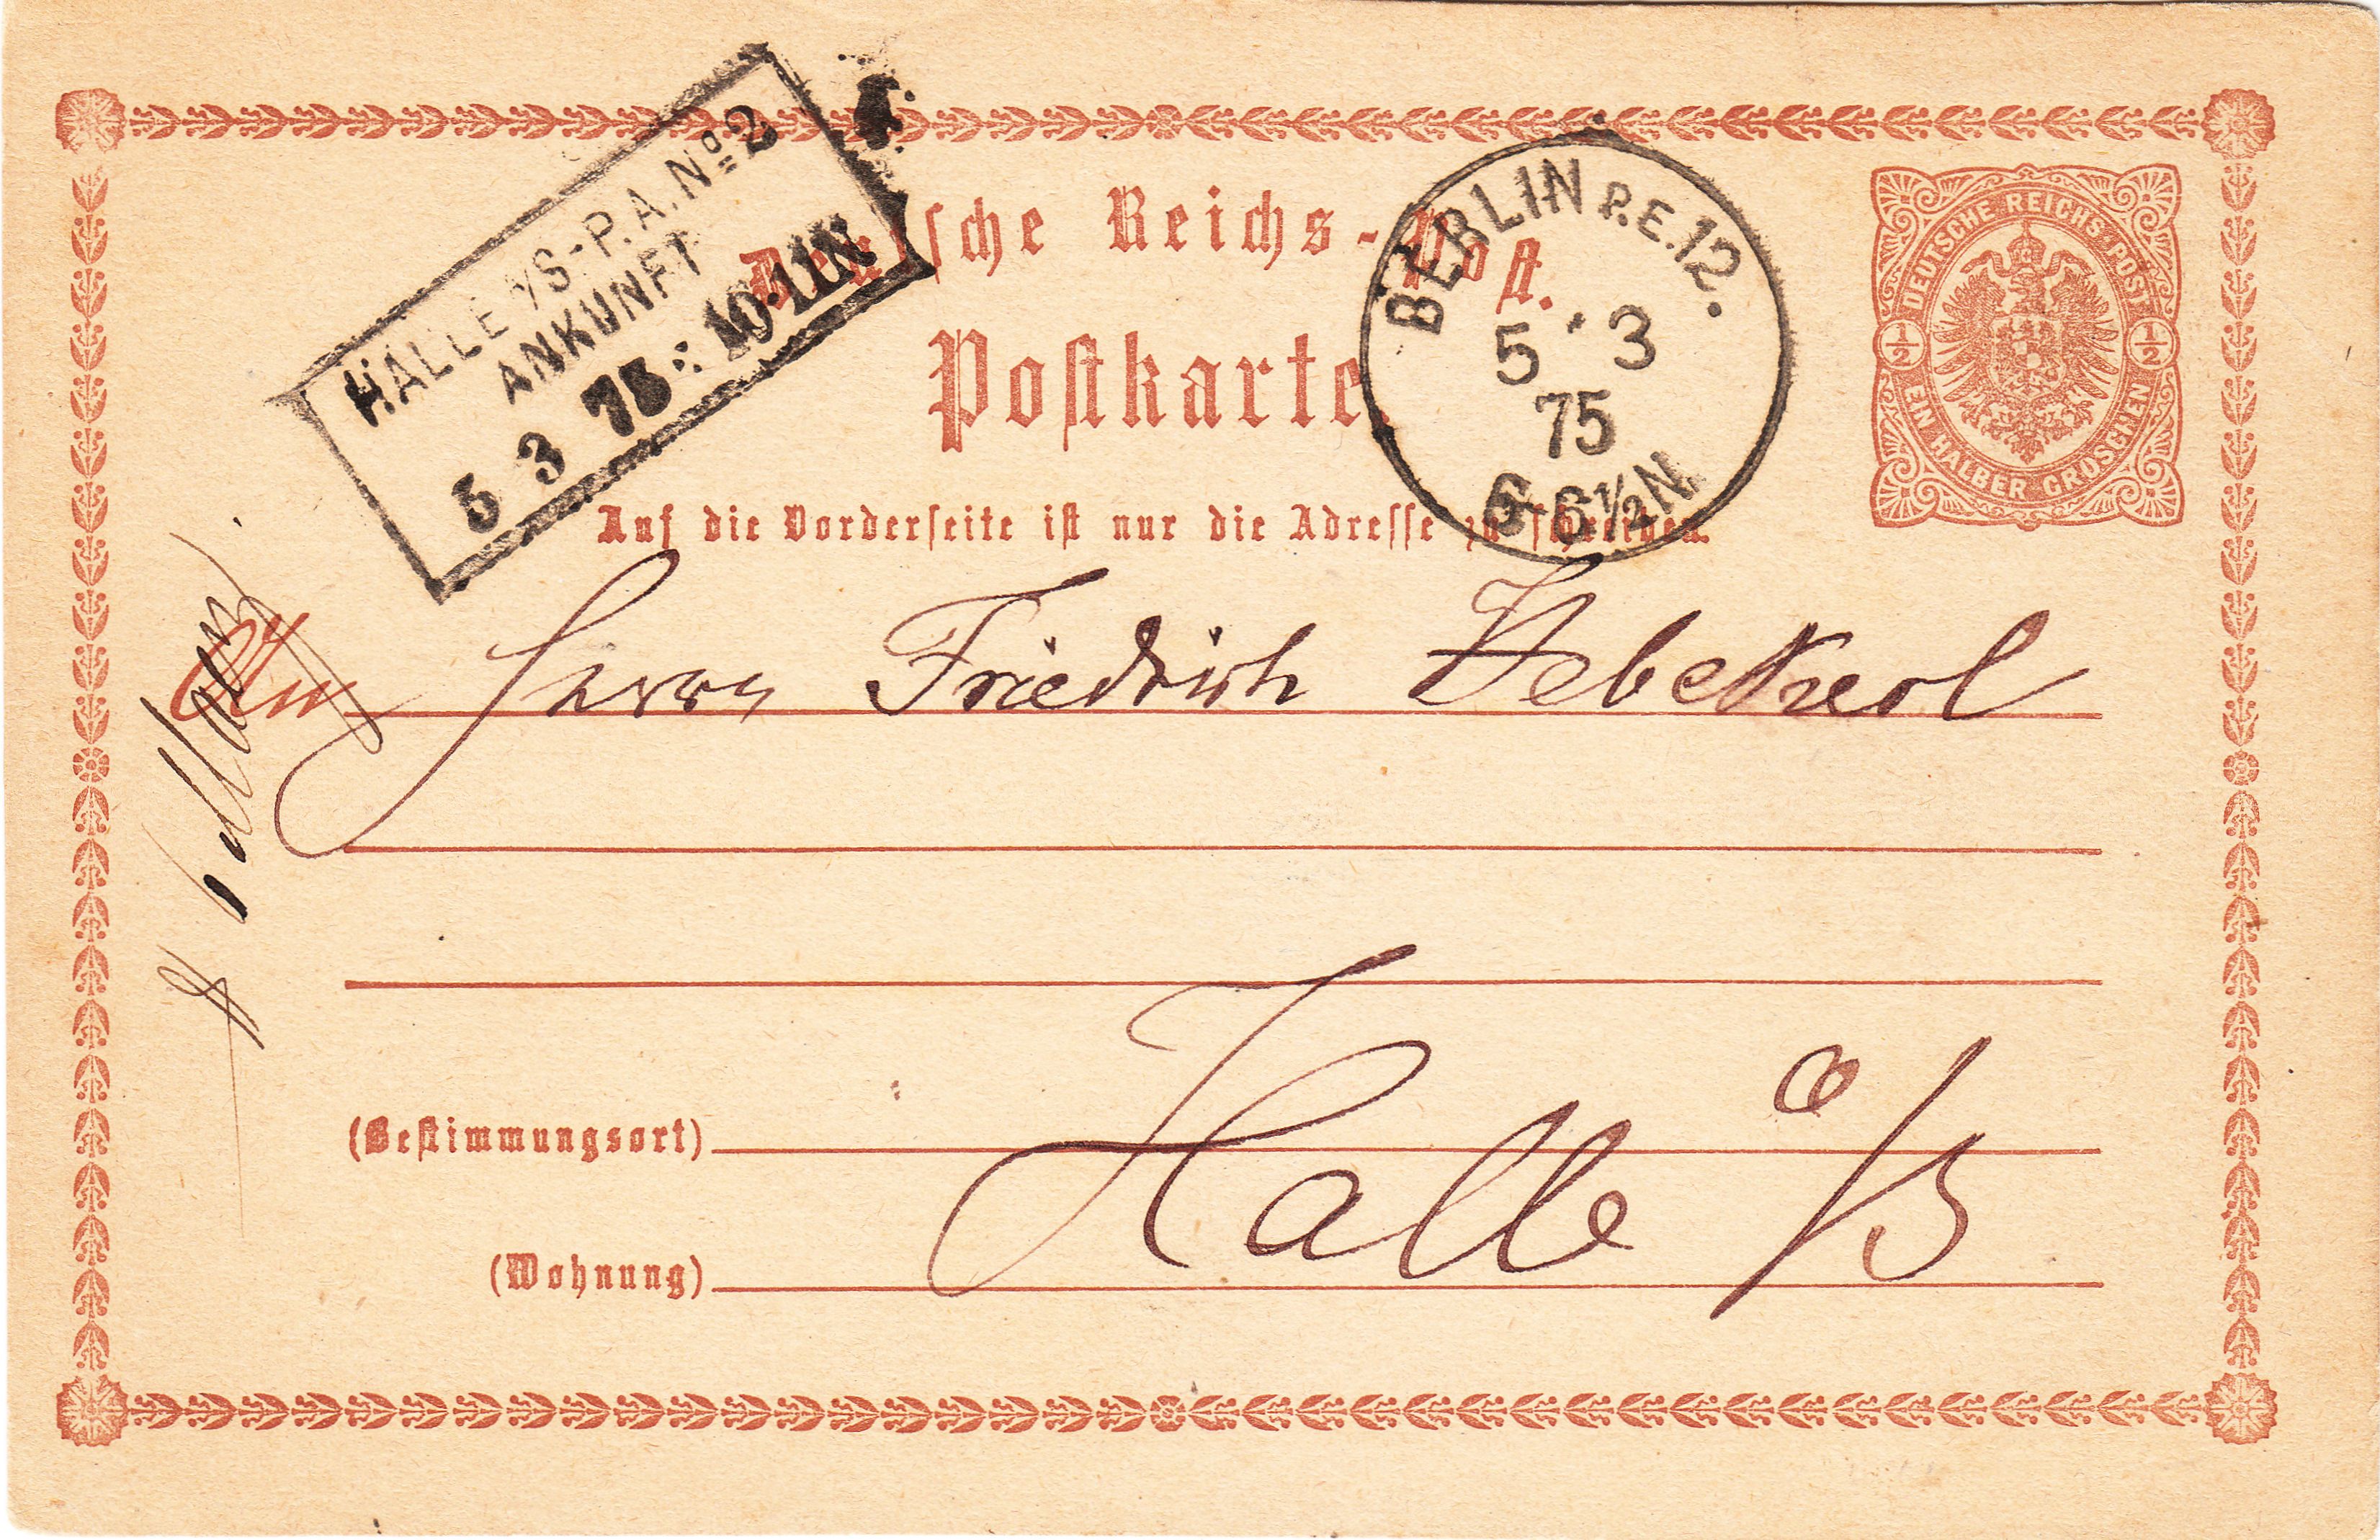 HALLE a/S-P.A.Nº 2
ANKUNFT
5 3 75 10-11N
Deutsche Reichs-Post.
BERLIN P.E.12.
5 3
75
6-6½N
DEUTSCHE REICHS-POST
½ ½
EIN HALBER GROSCHEN
Postkarte.
Auf die Vorderseite ist nur die Adresse zu schreiben.
An Herrn Friedrich
(Bestimmungsort)
Halle a/S
(Wohnung)